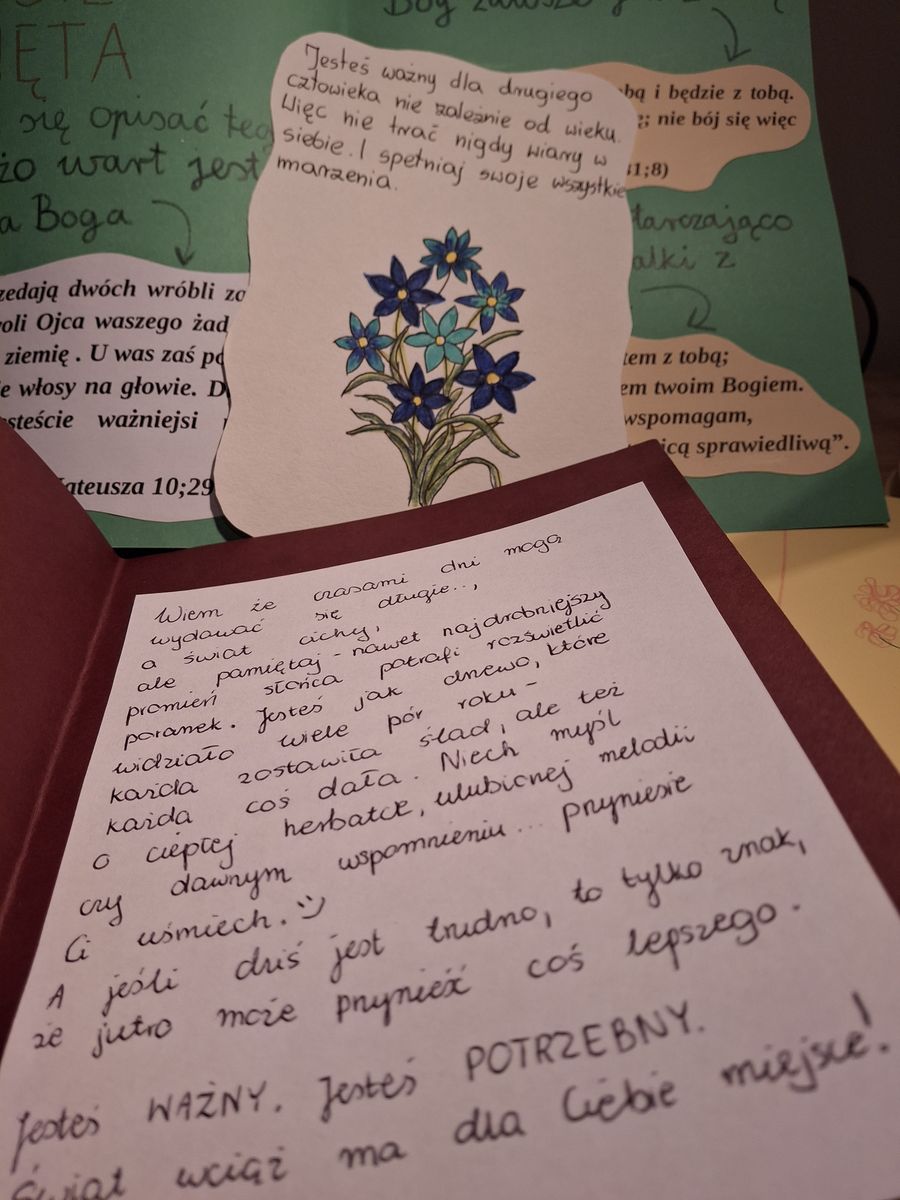 ĘTA
Bog zawsze
się opisać
wart jest
Boga
zedają dwóch wróbli
oli Ojca waszego
ziemię . U was zaś
włosy na głowie.
steście ważniejsi
ateusza 10;29
Jesteś ważny dla drugiego
człowieka nie zależnie od wieku.
Więc nie trać nigdy wiary w
siebie. I spełniaj swoje wszystkie
marzenia.
bą i będzie z tobą.
; nie bój się więc
1;8)
tarczająco
alki z
tem z tobą;
em twoim Bogiem.
wspomagam,
icą sprawiedliwą”.
Wiem że czasami dni mogą
wydawać się długie..,
a świat cichy,
ale pamiętaj - nawet najdrobniejszy
promień słońca potrafi rozświetlić
poranek. Jesteś jak drzewo, które
widziało wiele pór roku -
każda zostawiła ślad, ale też
każda coś dała. Niech myśl
o ciepłej herbatce, ulubionej melodii
czy dawnym wspomnieniu... przyniesie
Ci uśmiech. :)
A jeśli dziś jest trudno, to tylko znak,
że jutro może przynieść coś lepszego.
Jesteś WAŻNY. Jesteś POTRZEBNY.
Świat wciąż ma dla Ciebie miejsce!